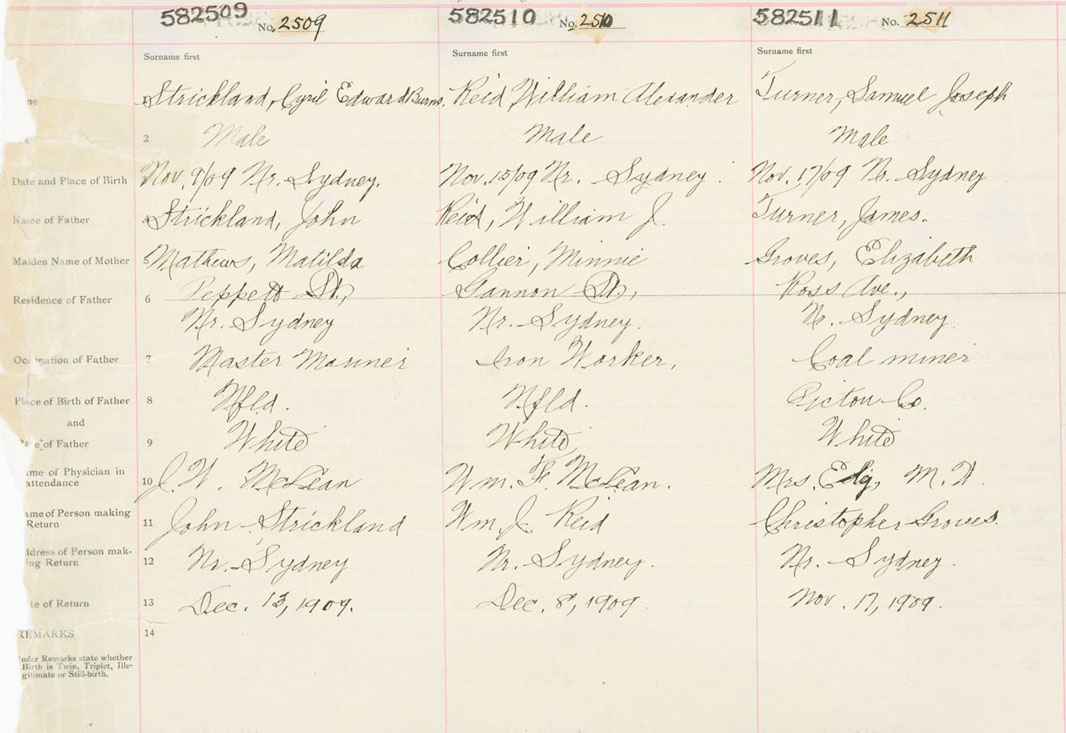 582509 No. 2509 582510 No. 2510 582511 No. 2511
Surname first Surname first Surname first
1 Strickland, Cyril Edward Burns. Reid William Alexander Turner, Samuel Joseph
2 Male Male Male
Date and Place of Birth 3 Nov. 9/09 Nr. Sydney. Nov. 15/09 Nr. Sydney. Nov. 17/09 Nr. Sydney
Name of Father 4 Strickland, John Reid, William J. Turner, James.
Maiden Name of Mother 5 Mathews, Matilda Collier, Minnie Groves, Elizabeth
Residence of Father 6 Peppett St., Gannon St., Ross Ave.,
Nr. Sydney Nr. Sydney. Nr. Sydney.
Occupation of Father 7 Master Mariner Iron Worker, Coal miner
Place of Birth of Father 8 Nfld. Nfld. Pictou Co.
and
of Father 9 White White White
ame of Physician in
attendance 10 J. W. McLean Wm. F. McLean. Mrs. M. W.
ame of Person making
Return 11 John Strickland Wm J. Reid Christopher Groves.
ddress of Person mak-
ing Return 12 Nr. Sydney Nr. Sydney. Nr. Sydney.
te of Return 13 Dec. 13, 1909. Dec. 8, 1909. Nov. 17, 1909.
REMARKS 14
nder Remarks state whether
Birth is Twin, Triplet, Ille-
gitimate or Still-birth.